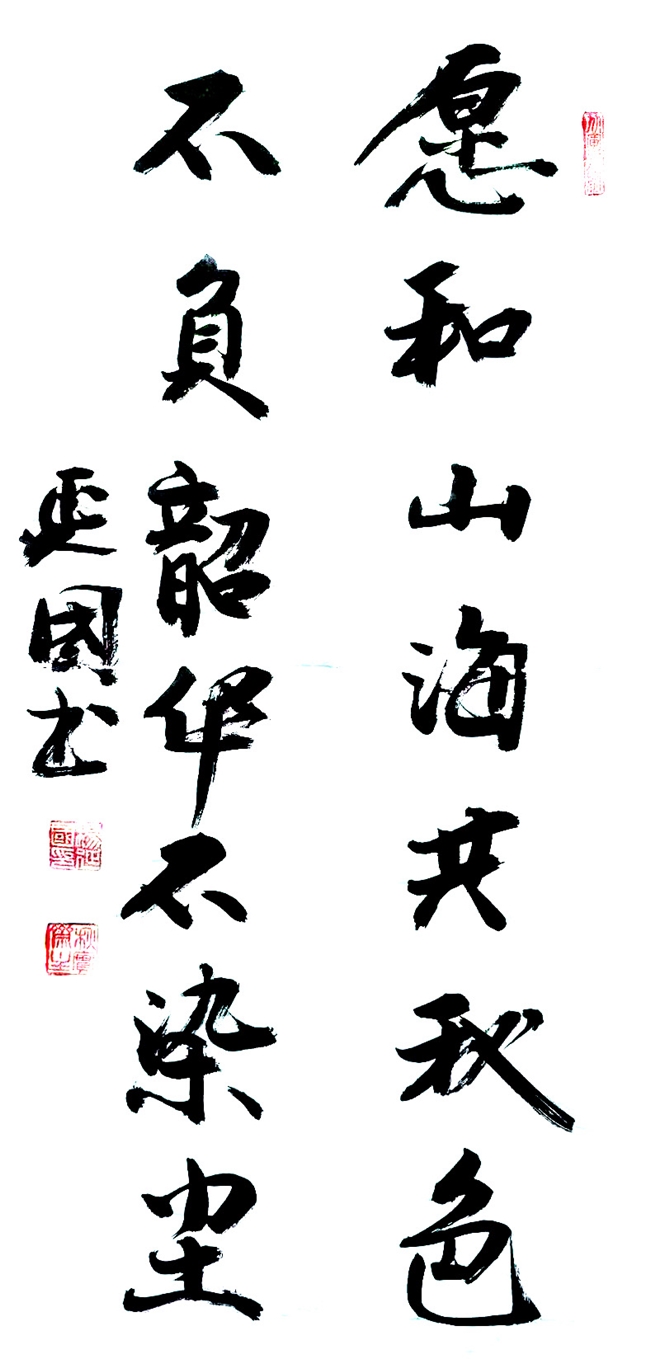 愿和山海共秋色
不负韶华不染尘
延国书